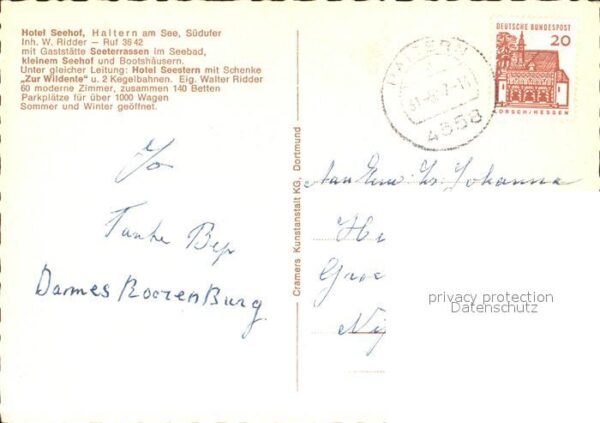 Hotel Seehof, Haltern am See, Südufer
Inh. W. Ridder – Ruf 3642
mit Gaststätte Seeterrassen im Seebad,
kleinem Seehof und Bootshäusern.
Unter gleicher Leitung: Hotel Seestern mit Schenke
„Zur Wildente" u. 2 Kegelbahnen. Eig. Walter Ridder
60 moderne Zimmer, zusammen 140 Betten
Parkplätze für über 1000 Wagen
Sommer und Winter geöffnet.
DEUTSCHE BUNDESPOST
20
LORSCH/HESSEN
HALTERN
4358
Cramers Kunstanstalt KG, Dortmund
Tante Bep
Dames Roozenburg
Aan Johanna
privacy protection
Datenschutz